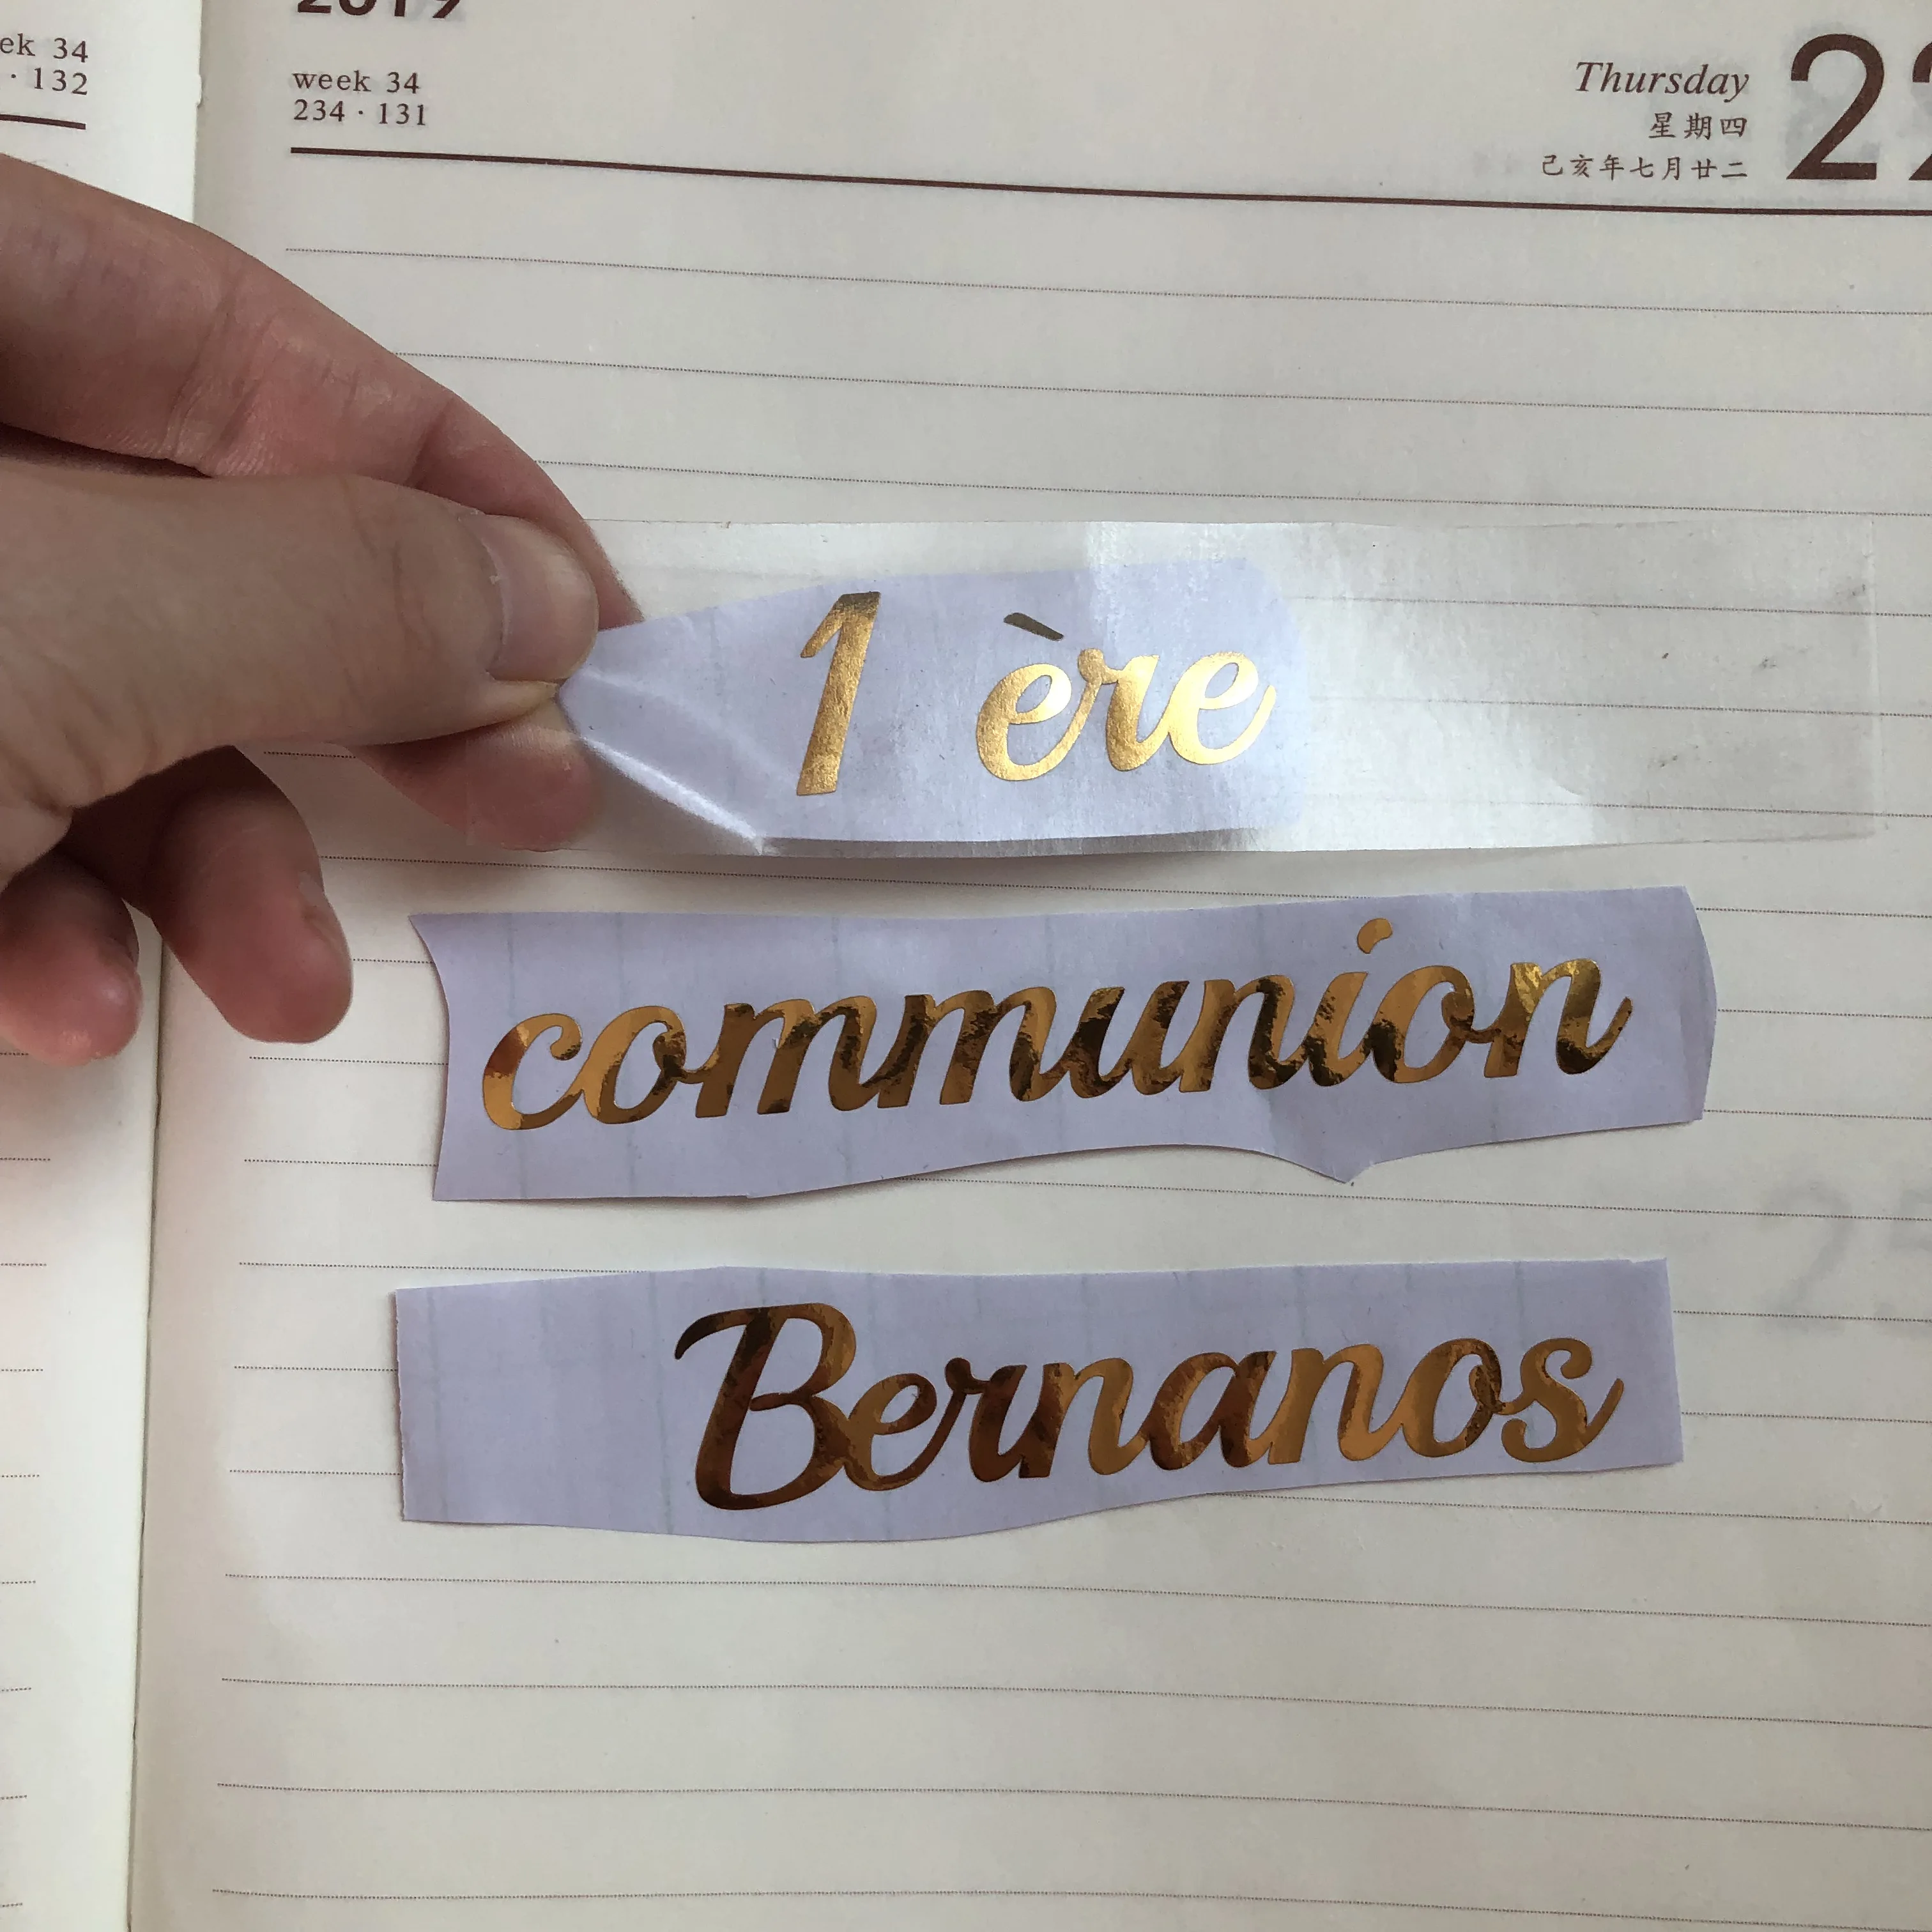 2019
ek 34
· 132
week 34
234 · 131
Thursday
星期四
己亥年七月廿二
22
1 ère
communion
Bernanos